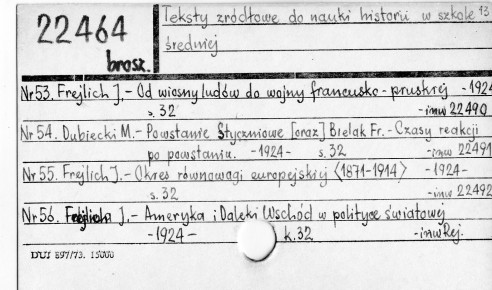 22464
brosz.
Teksty źródłowe do nauki historii w szkole 13
średniej
Nr 53. Frejlich J. - Od wiosny ludów do wojny francusko-pruskiej - 1924
s. 32 - inw 22490
Nr 54. Dubiecki M. - Powstanie Styczniowe [oraz] Bielak Fr. - Czasy reakcji
po powstaniu. - 1924 - s. 32 - inw 22491
Nr 55. Frejlich J. - Okres równowagi europejskiej <1871-1914> - 1924 -
s. 32 - inw 22492
Nr 56. Frejlich J. - Ameryka i Daleki Wschód w polityce światowej
- 1924 - k. 32 - inw Rej.
DUJ 897/73. 15000